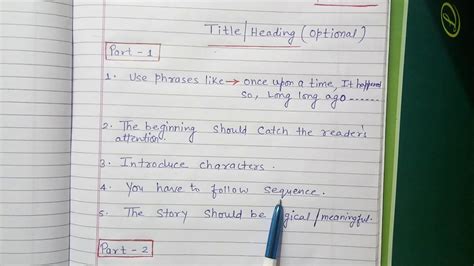 Title/Heading (optional)
Part - 1
1. Use phrases like → once upon a time, It happened
so, Long long ago ------
2. The beginning should catch the reader's
attention.
3. Introduce characters.
4. You have to follow sequence.
5. The story should be logical/meaningful.
Part - 2